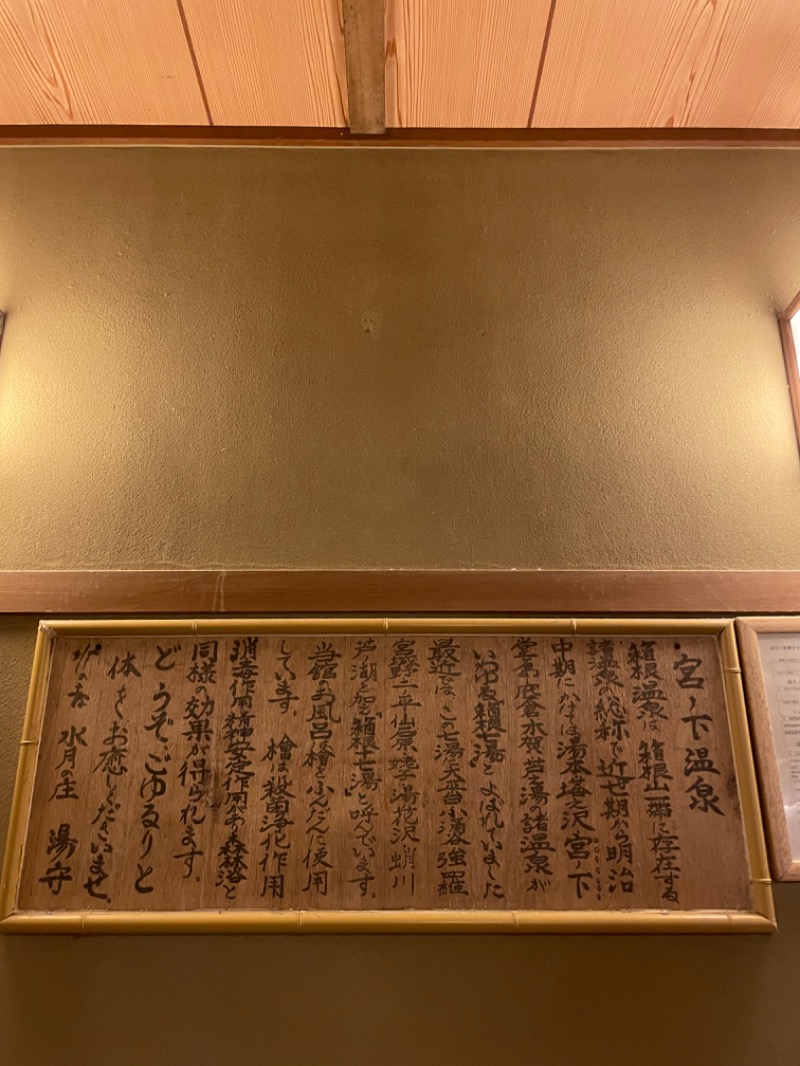 宮ノ下温泉
箱根温泉は箱根山一帯に存在する
諸温泉の総称で近世期から明治
中期にかけては湯本塔之沢宮ノ下
堂ヶ島底倉木賀芦之湯諸温泉が
いわゆる箱根七湯とよばれていました
最近ではこの七湯に大平台小涌谷強羅
宮城野二ノ平仙石原姥子湯の花沢蛸川
芦ノ湖を加え「箱根十七湯」と呼んでいます。
当館のお風呂は檜をふんだんに使用
しています。檜は殺菌浄化作用
消毒作用精神安定作用があり森林浴と
同様の効果が得られます。
どうぞごゆるりと
体をお癒しくださいませ。
水の音 水月の庄 湯守